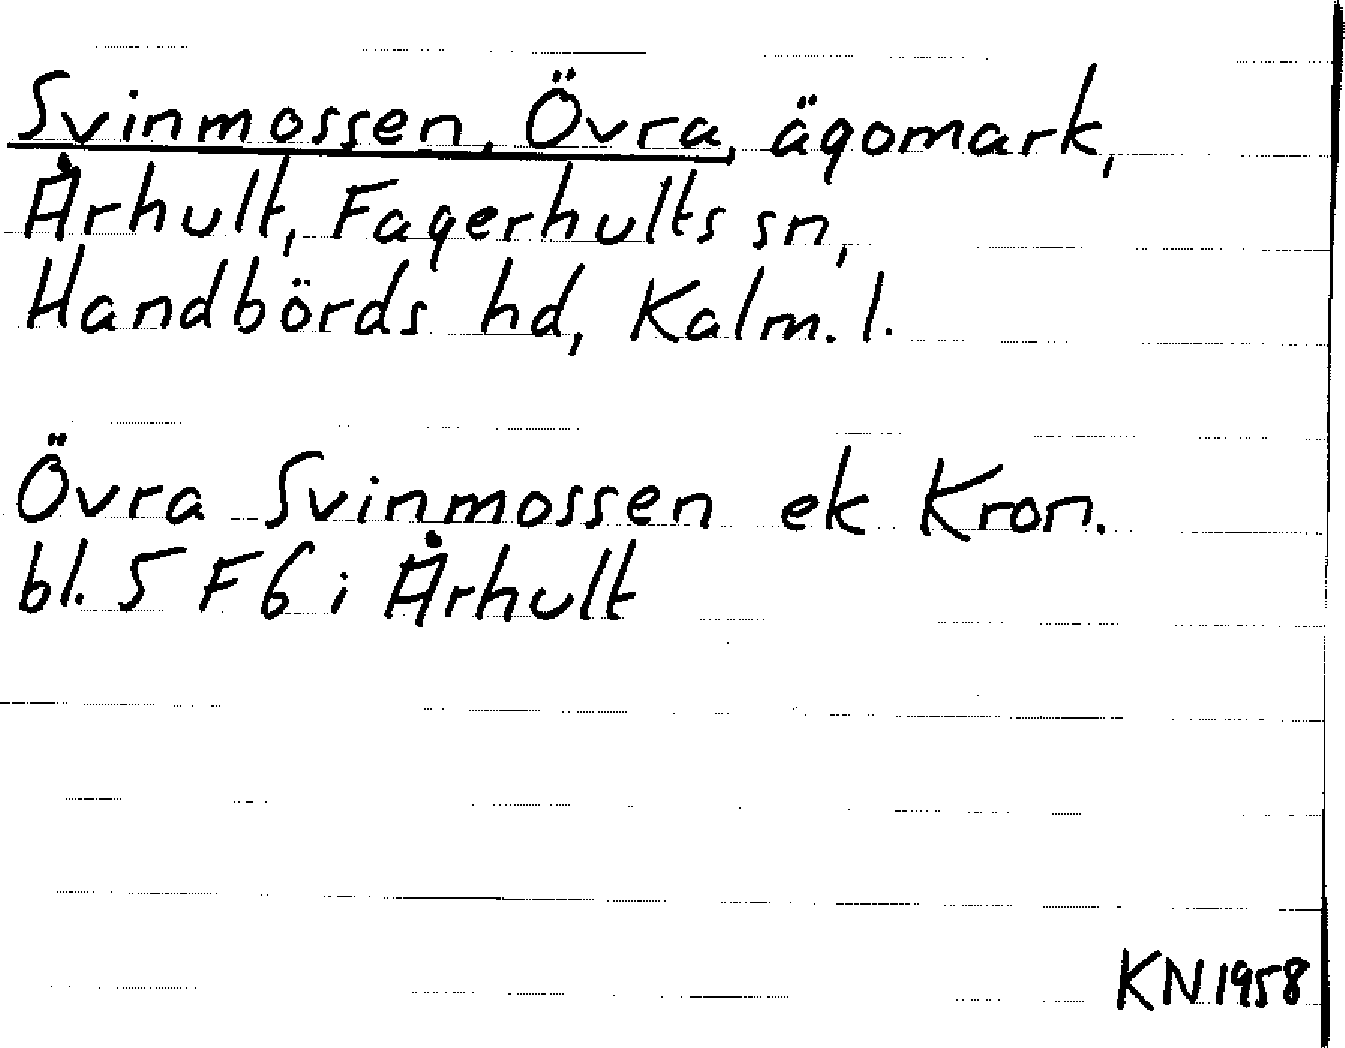 Svinmossen, Övra, ägomark,
Århult, Fagerhults sn,
Handbörds hd, Kalm. l.
Övra Svinmossen ek Kron.
bl. 5 F 6 i Århult
KN 1958